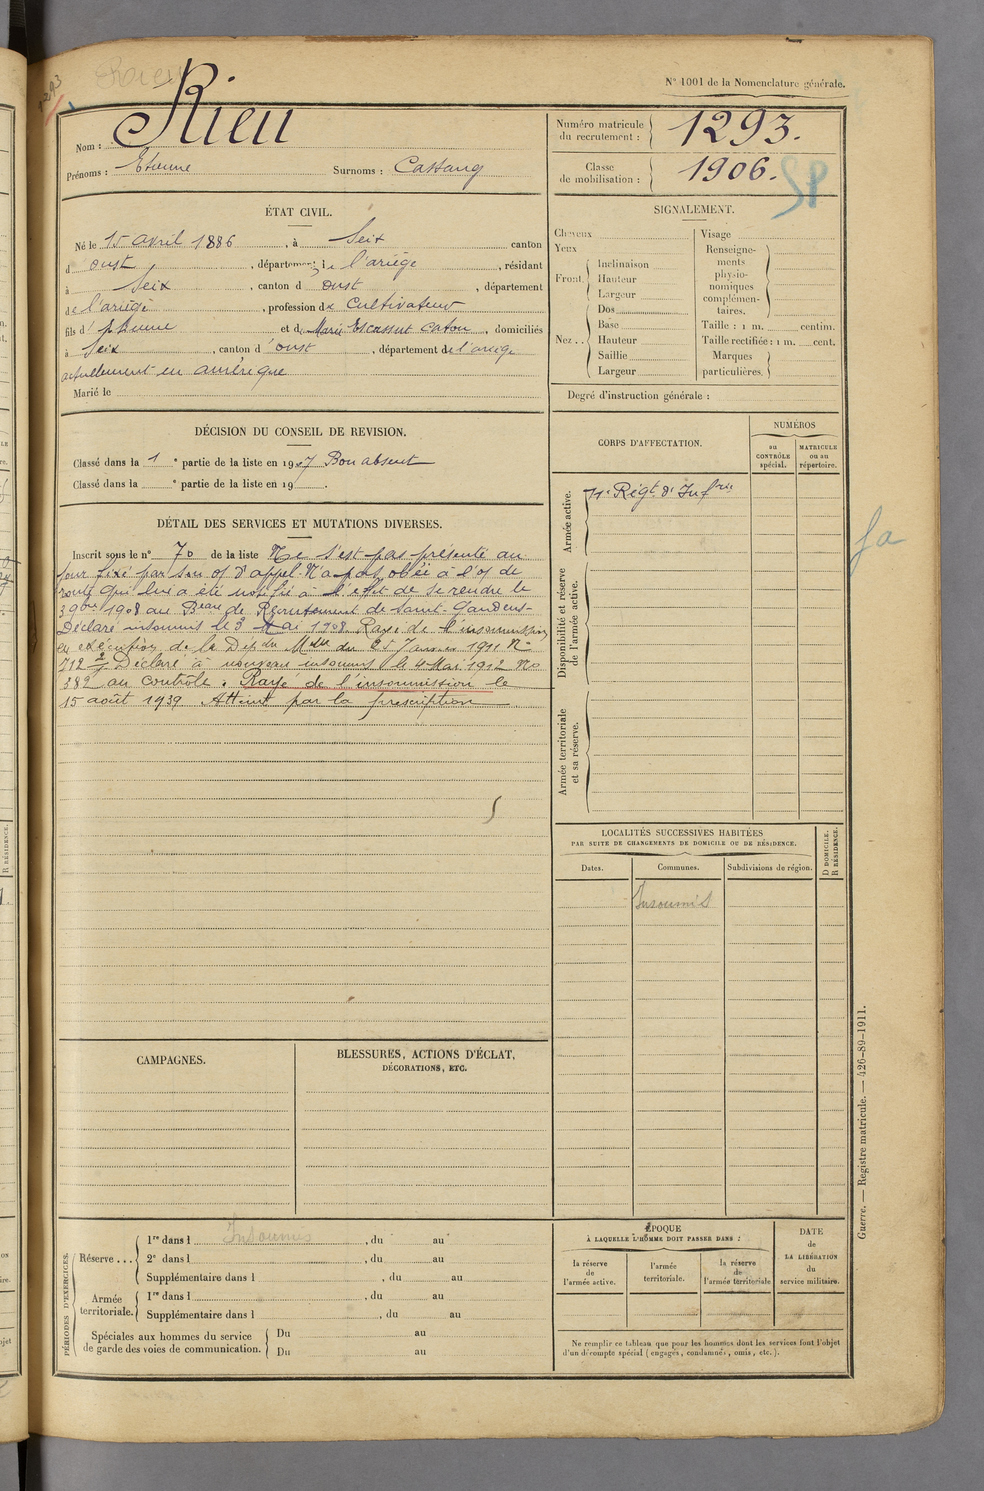 1293
Rieu
N° 1001 de la Nomenclature générale.
Nom : Rieu
Prénoms : Etienne Surnoms : Cattang
Numéro matricule du recrutement : 1293.
Classe de mobilisation : 1906.
SP
ÉTAT CIVIL.
Né le 15 avril 1886, à Seix canton
d'oust, département de l'ariège, résidant
à Seix, canton d'oust, département
de l'ariège, profession de Cultivateur
fils d'etienne et de Marie Escassut Catou, domiciliés
à Seix, canton d'oust, département de l'ariège
actuellement en amérique
Marié le
SIGNALEMENT.
Cheveux
Yeux
Front. Inclinaison
Hauteur
Largeur
Nez.. Dos
Base
Hauteur
Saillie
Largeur
Visage
Renseignements physionomiques complémentaires.
Taille : 1 m. centim.
Taille rectifiée : 1 m. cent.
Marques particulières.
Degré d'instruction générale :
DÉCISION DU CONSEIL DE REVISION.
Classé dans la 1e partie de la liste en 1907 Bon absent
Classé dans la e partie de la liste en 19 .
DÉTAIL DES SERVICES ET MUTATIONS DIVERSES.
Inscrit sous le n° 70 de la liste Ne s'est pas présenté au
jour fixé par son of d'appel. N'a pas obéi à l'of de
route qui lui a été notifié à l'effet de se rendre le
3 9bre 1908 au Beau de Recrutement de Saint-Gaudens
Déclaré insoumis le 3 Mai 1908. Rayé de l'insoumission
en exécution de la Dép du Mtelle du 25 Janvier 1911 N°
712 2/7 Déclaré à nouveau insoumis le 4 Mai 1912 No
382 au contrôle. Rayé de l'insoumission le
15 août 1939 Atteint par la prescription
CORPS D'AFFECTATION.
NUMÉROS
au CONTRÔLE spécial.
MATRICULE ou au répertoire.
Armée active.
Régt d'Infrie
Disponibilité et réserve de l'armée active.
Armée territoriale et sa réserve.
fa
LOCALITÉS SUCCESSIVES HABITÉES
PAR SUITE DE CHANGEMENTS DE DOMICILE OU DE RÉSIDENCE.
D DOMICILE. R RÉSIDENCE.
Dates. Communes. Subdivisions de région.
Insoumis
CAMPAGNES.
BLESSURES, ACTIONS D'ÉCLAT,
DÉCORATIONS, ETC.
PÉRIODES D'EXERCICES.
Réserve... 1re dans l Insoumis, du au
2e dans l , du au
Supplémentaire dans l , du au
Armée territoriale. 1re dans l , du au
Supplémentaire dans l , du au
Spéciales aux hommes du service de garde des voies de communication. Du au
Du au
ÉPOQUE
À LAQUELLE L'HOMME DOIT PASSER DANS :
la réserve de l'armée active.
l'armée territoriale.
la réserve de l'armée territoriale
DATE de LA LIBÉRATION du service militaire.
Ne remplir ce tableau que pour les hommes dont les services font l'objet
d'un décompte spécial (engagés, condamnés, omis, etc.).
Guerre. — Registre matricule. — 426-89-1911.